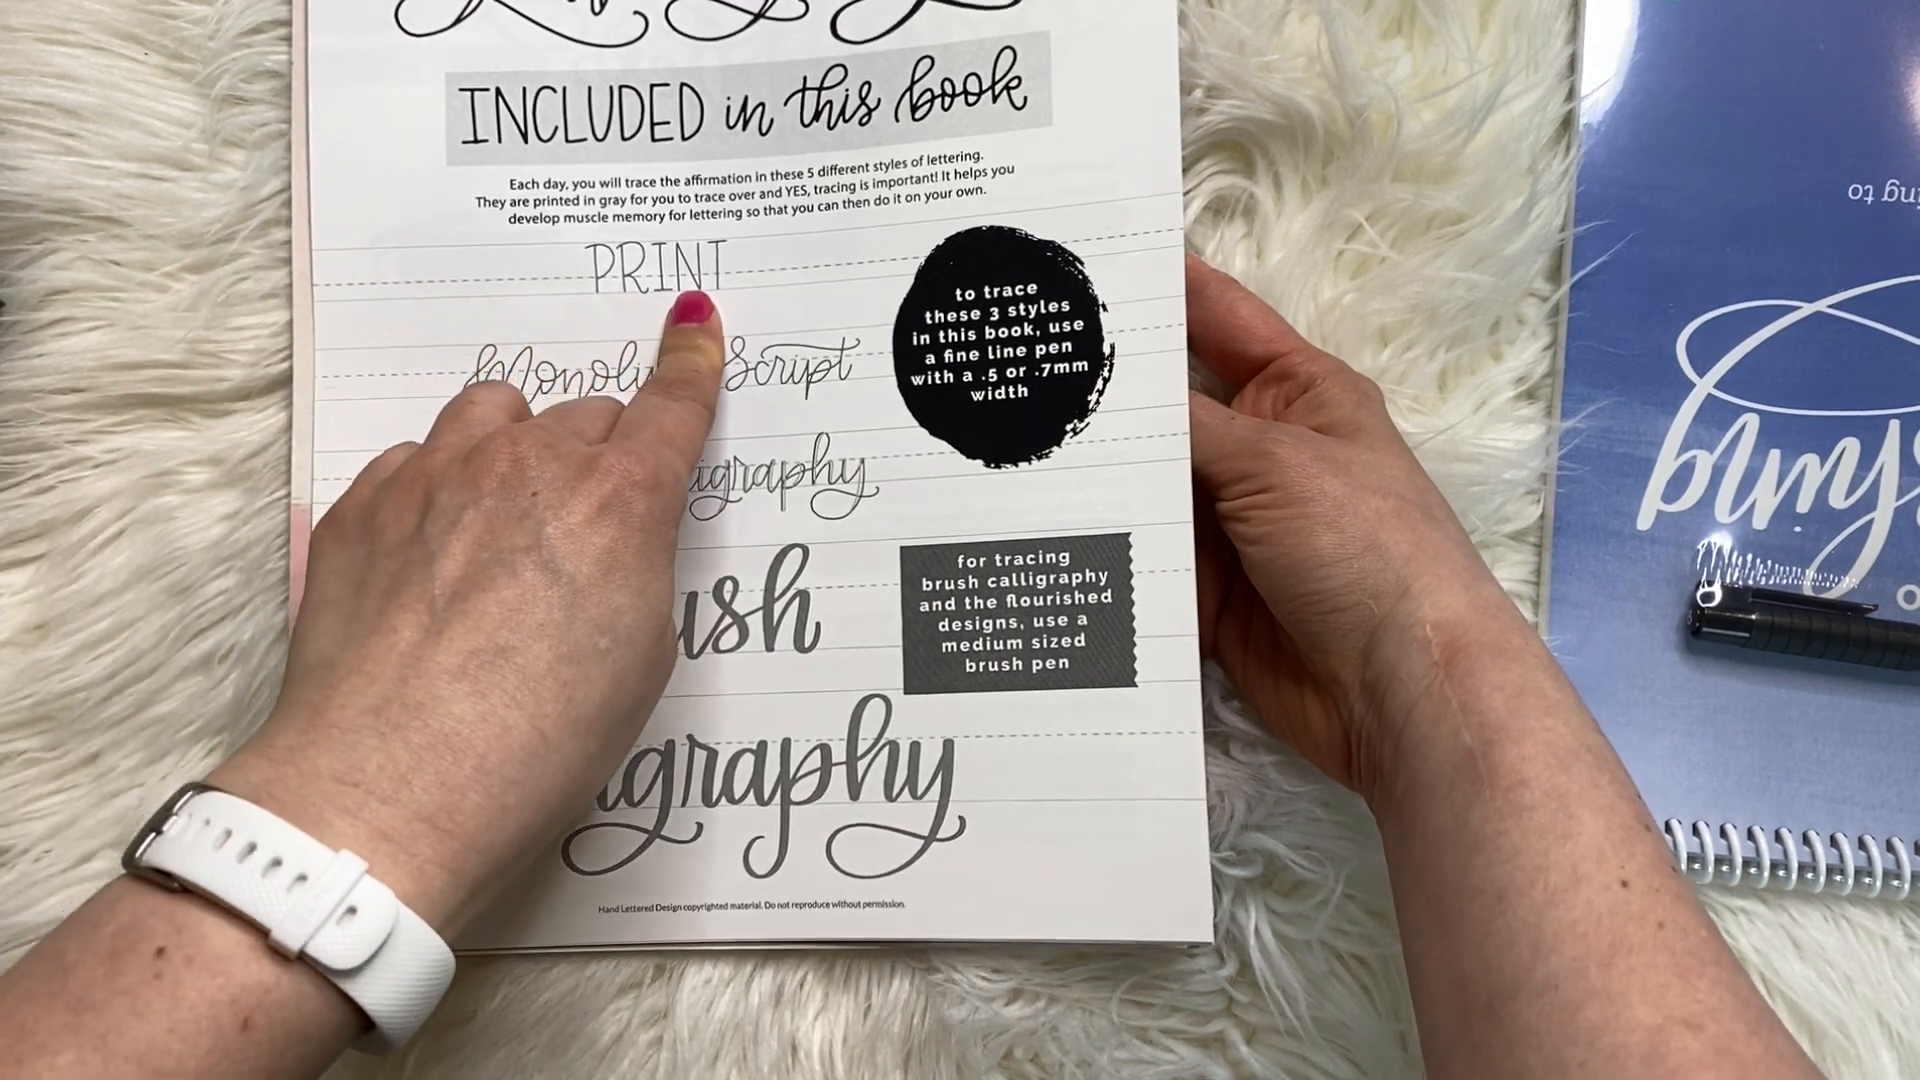 INCLUDED in this book
Each day, you will trace the affirmation in these 5 different styles of lettering.
They are printed in gray for you to trace over and YES, tracing is important! It helps you
develop muscle memory for lettering so that you can then do it on your own.
PRINT
Script
to trace
these 3 styles
in this book, use
a fine line pen
with a .5 or .7mm
width
for tracing
brush calligraphy
and the flourished
designs, use a
medium sized
brush pen
Hand Lettered Design copyrighted material. Do not reproduce without permission.